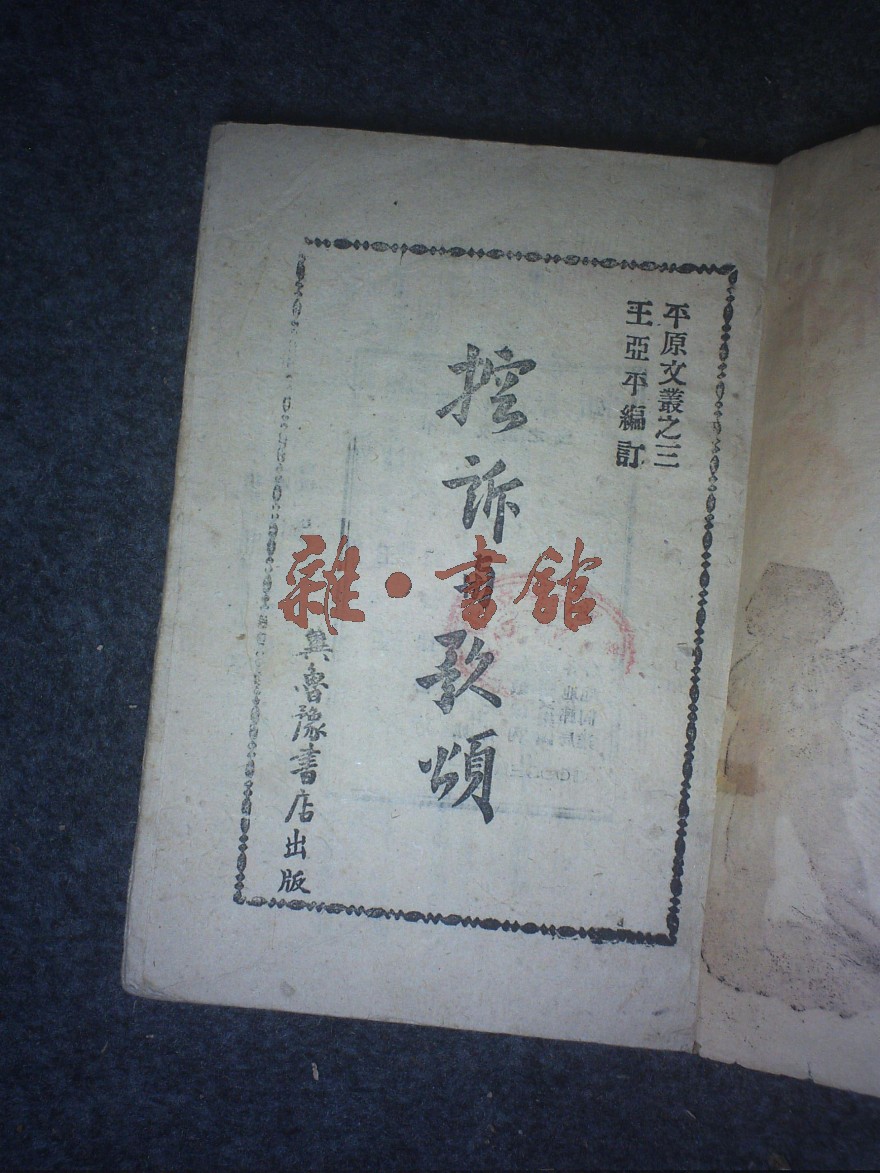 平原文叢之三
王亞平編訂
控訴與歌頌
冀魯豫書店出版
雜·書館